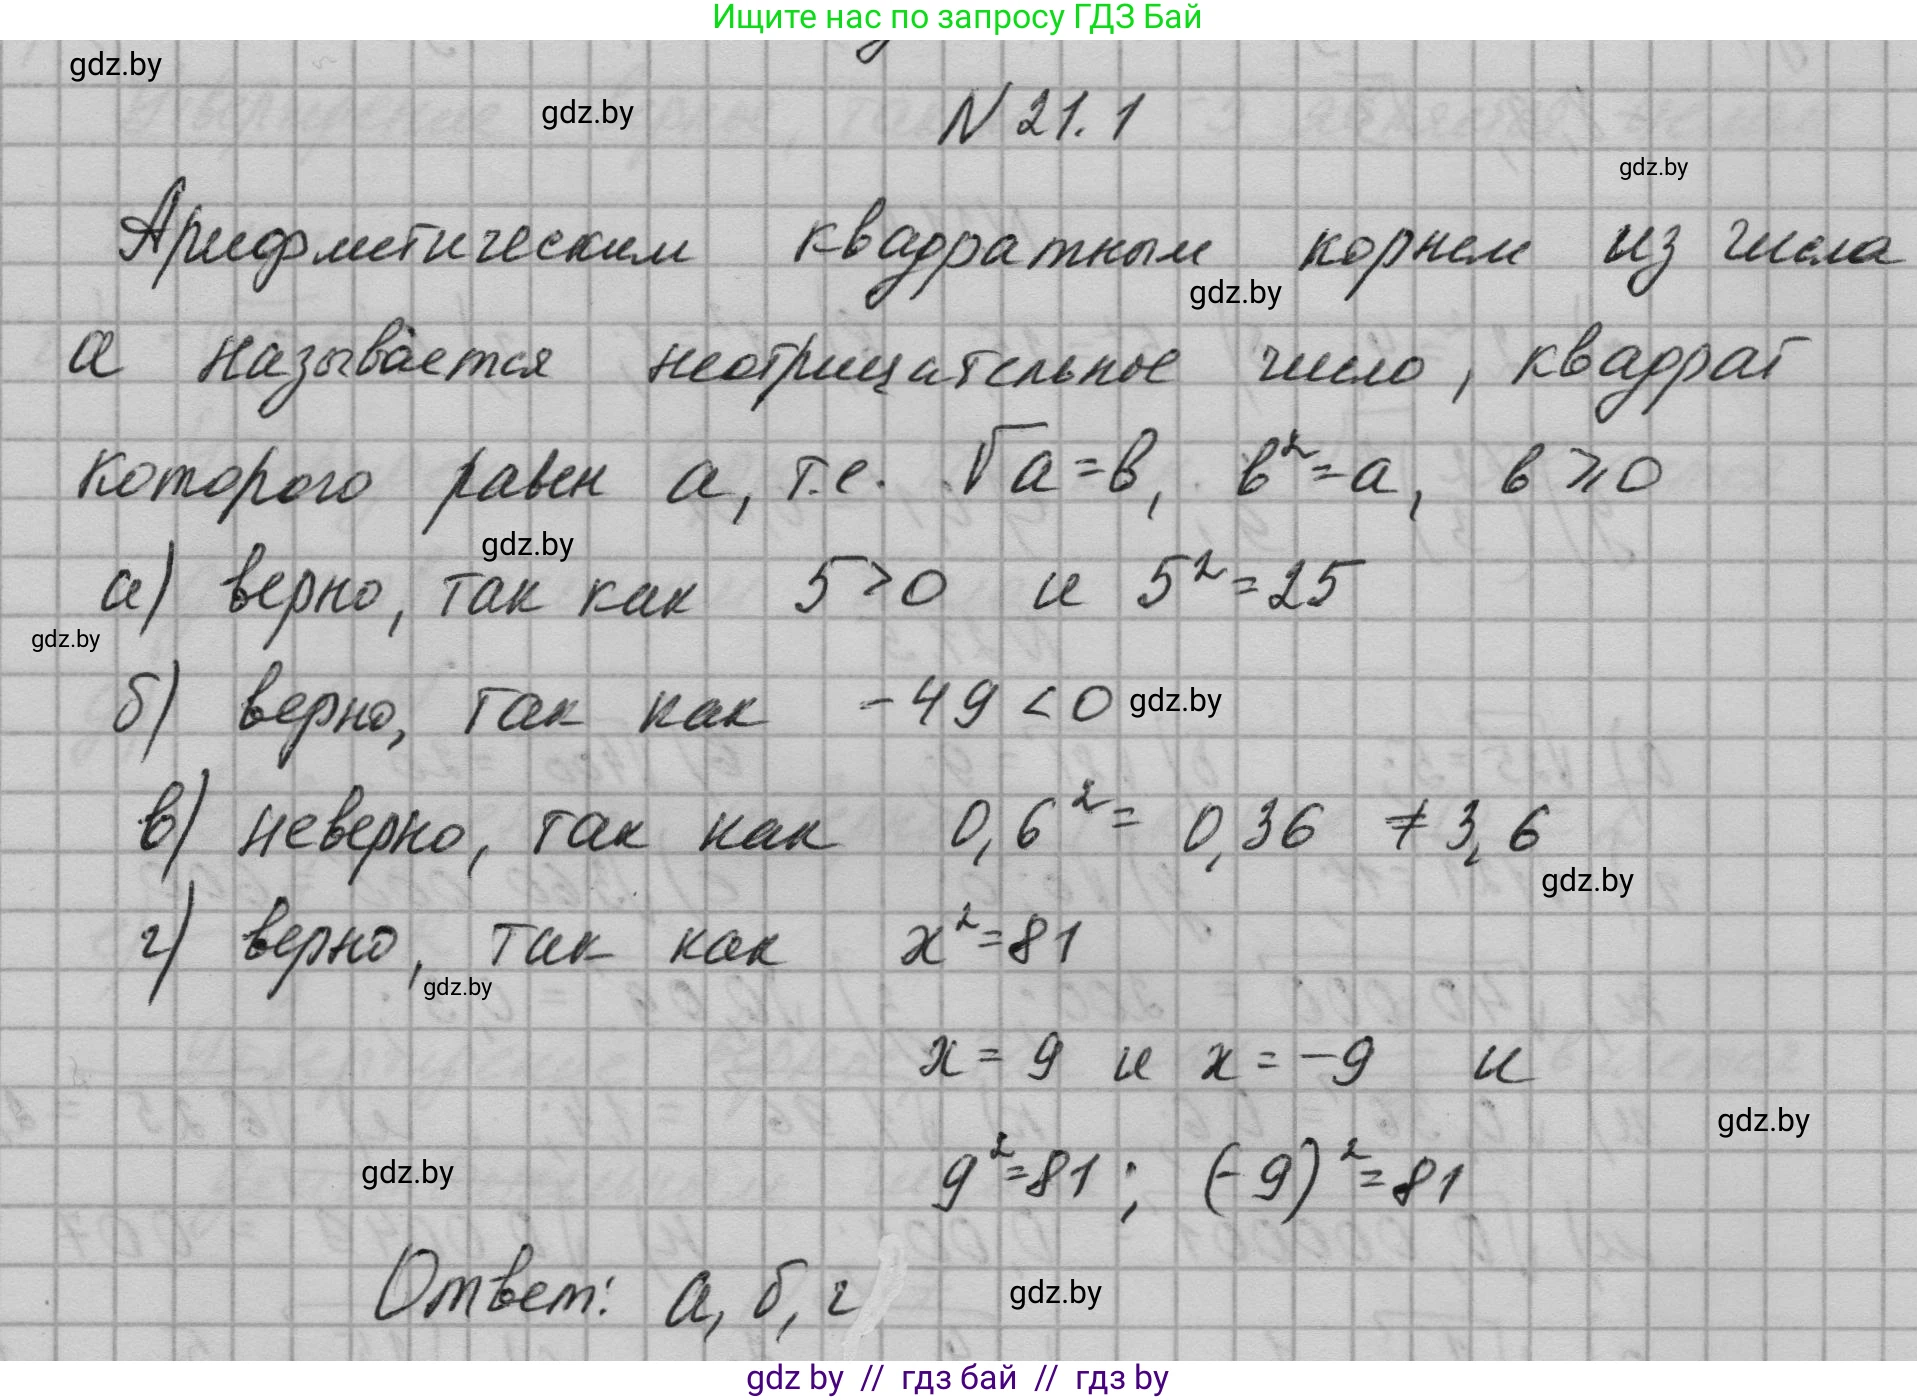 Ищите нас по запросу ГДЗ Бай
gdz.by
gdz.by
N 21.1
gdz.by
Арифметическим квадратным корнем из числа
gdz.by
а называется неотрицательное число, квадрат
которого равен а, т.е. √а=в, в²=а, в⩾0
gdz.by
а) верно, так как 5>0 и 5²=25
gdz.by
б) верно, так как -49<0
gdz.by
в) неверно, так как 0,6²= 0,36 ≠3,6
gdz.by
г) верно, так как x²=81
gdz.by
x= 9 и x=-9 и
gdz.by
9²=81; (-9)²=81
gdz.by
Ответ: а, б, г
gdz.by
gdz by // гдз бай // гдз by